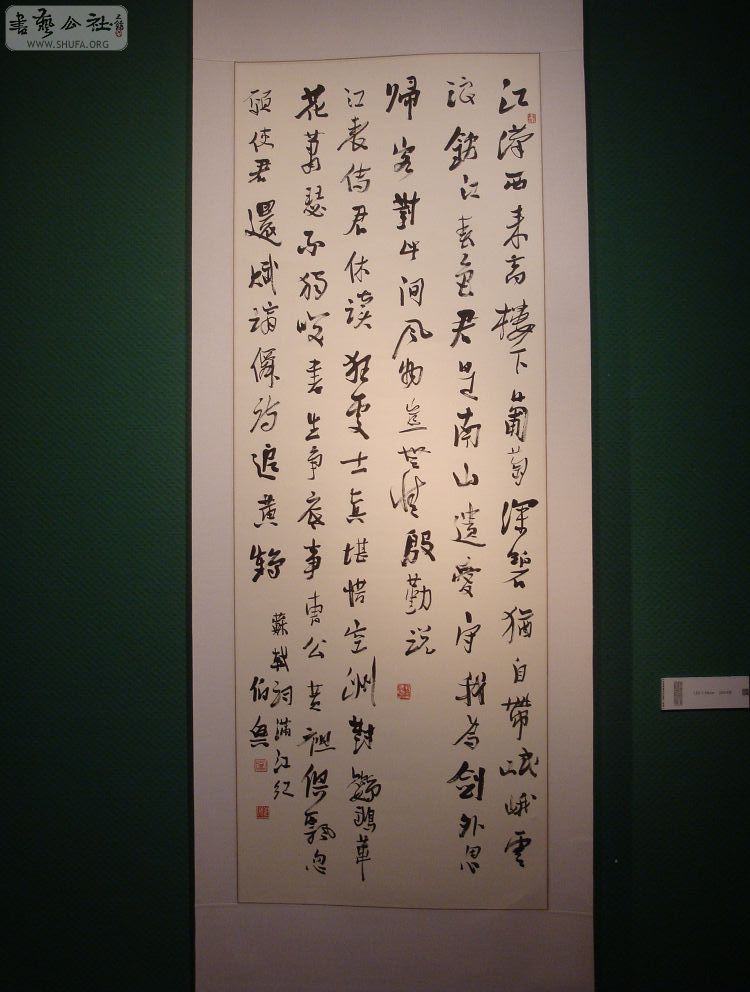 書藝公社
WWW.SHUFA.ORG
江漢西來高樓下葡萄深碧猶自帶岷峨雲
浪錦江春色君是南山遺愛守我為劍外思
歸客對此間風物豈無情殷勤說
江表傳君休讀狂處士真堪惜空洲對鸚鵡葦
花蕭瑟不獨笑書生爭底事曹公黃祖俱飄忽
願使君還賦謫僊詩追黃鶴
蘇軾詞滿江紅
伯